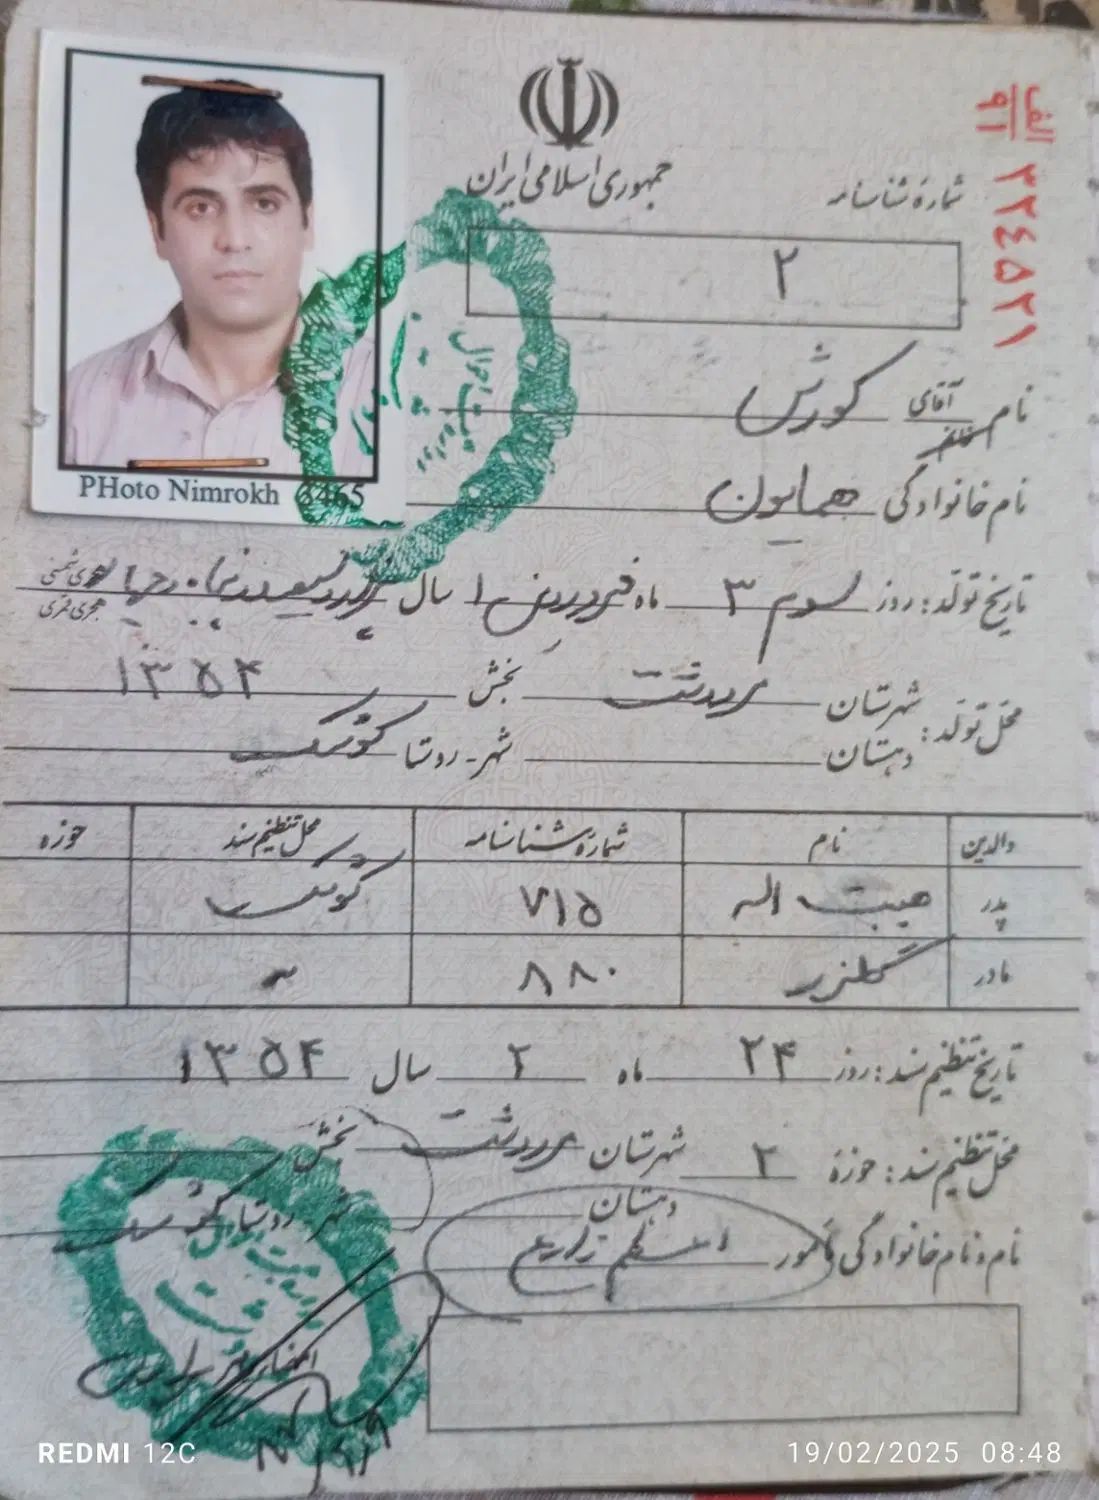 جمهوری اسلامی ایران
الف
۹۱
۲۲۴۵۲۱
شمارهٔ شناسنامه
۲
نام آقای خانم کورش
نام خانوادگی همایون
PHoto Nimrokh 6465
تاریخ تولد: روز سوم ۳ ماه فروردین ۱ سال هجری شمسی
هجری قمری
۱۳۵۴
محل تولد: شهرستان مرودشت بخش
دهستان شهر - روستا کوشک
والدین نام شمارهٔ شناسنامه محل تنظیم سند حوزه
پدر هیبت اله ۷۱۵ کوشک
مادر گلزر ۸۸۰ "
تاریخ تنظیم سند: روز ۲۴ ماه ۲ سال ۱۳۵۴
محل تنظیم سند: حوزهٔ ۲ شهرستان مرودشت بخش
دهستان شهر - روستا کوشک
نام و نام خانوادگی مأمور
REDMI 12C
19/02/2025 08:48